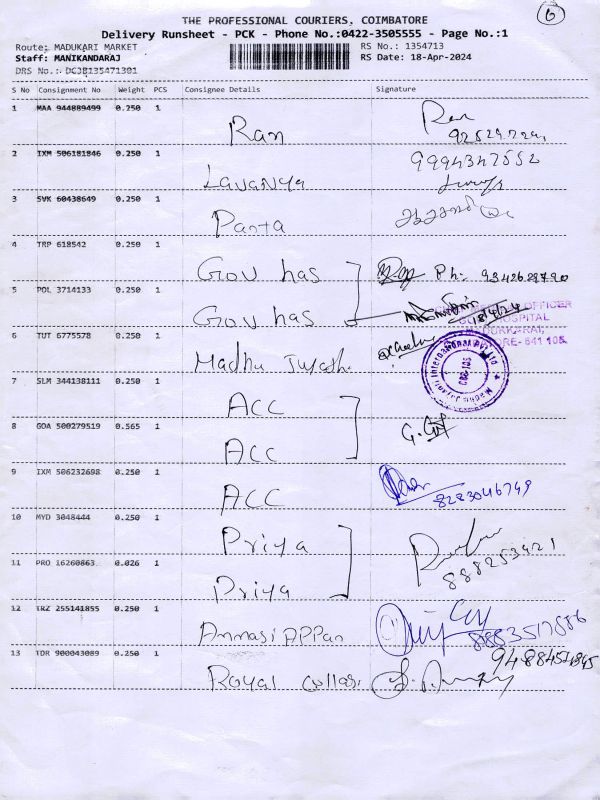 6
THE PROFESSIONAL COURIERS, COIMBATORE
Delivery Runsheet - PCK - Phone No.:0422-3505555 - Page No.:1
Route: MADUKARI MARKET
RS No.: 1354713
Staff: MANIKANDARAJ
RS Date: 18-Apr-2024
DRS No.: DC3B135471301
S No Consignment No Weight PCS Consignee Details Signature
1 MAA 944889499 0.250 1 Ram
2 IXM 506181846 0.250 1 Lavanya 9994347552
3 SVK 60438649 0.250 1
4 TRP 618542 0.250 1 Gov has Ph: 9342628790
5 POL 3714133 0.250 1 Gov has
OFFICER
HOSPITAL
6 TUT 6775578 0.250 1 Madhu
7 SLM 344138111 0.250 1 ACC
8 GOA 500279519 0.565 1 ACC
9 IXM 506232698 0.250 1 ACC 8283046749
10 MYD 3048444 0.250 1 Priya
11 PRO 16260863 0.026 1 Priya 888253421
12 TRZ 255141855 0.250 1 Ammasi APPan
13 TDR 900043089 0.250 1 Royal